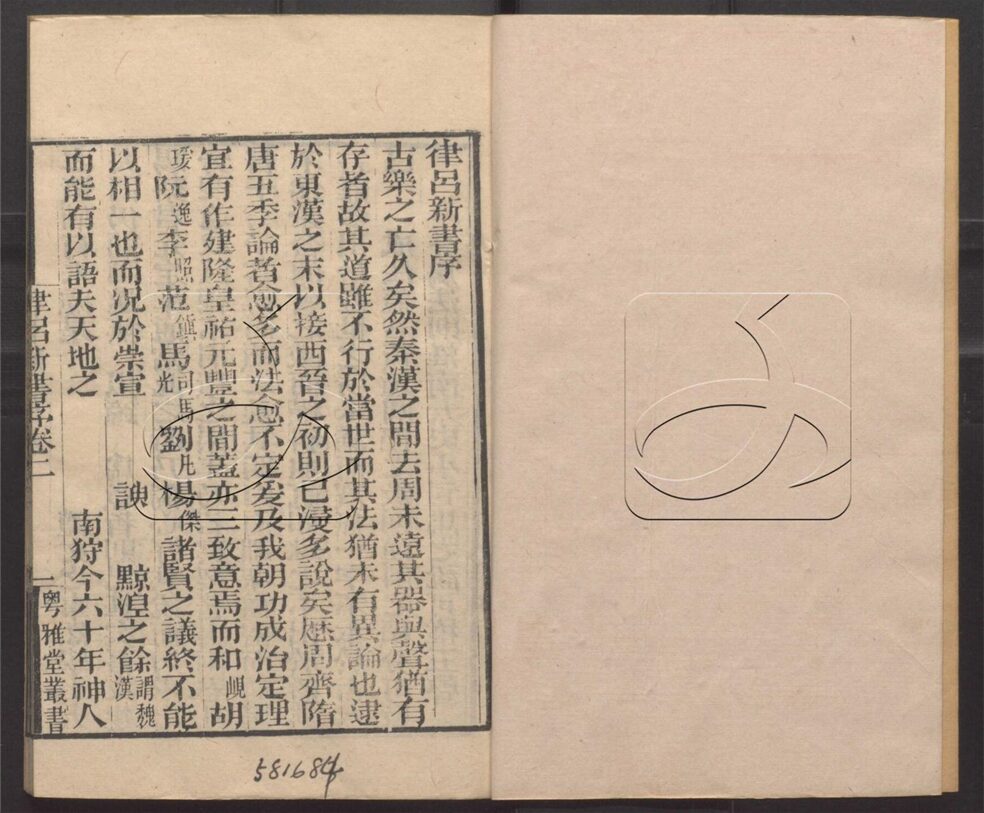 律呂新書序
古樂之亡久矣然秦漢之間去周未遠其器與聲猶有
存者故其道雖不行於當世而其法猶未有異論也逮
於東漢之末以接西晉之初則已漫多說矣歷周齊隋
唐五季論者愈多而法愈不定爰及我朝功成治定理
宜有作建隆皇祐元豐之間蓋亦三致意焉而和峴胡
瑗阮逸李照范鎮馬司馬光劉几楊傑諸賢之議終不能
以相一也而况於崇宣 諛 黥湼之餘謂魏漢
而能有以語夫天地之 南狩今六十年神人
律呂新書序卷一
一粤雅堂叢書
581684